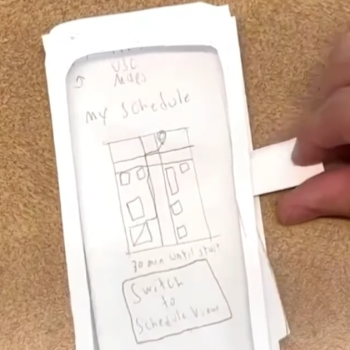 USC
Maps
My Schedule
30 min until start
Switch
to
Schedule View